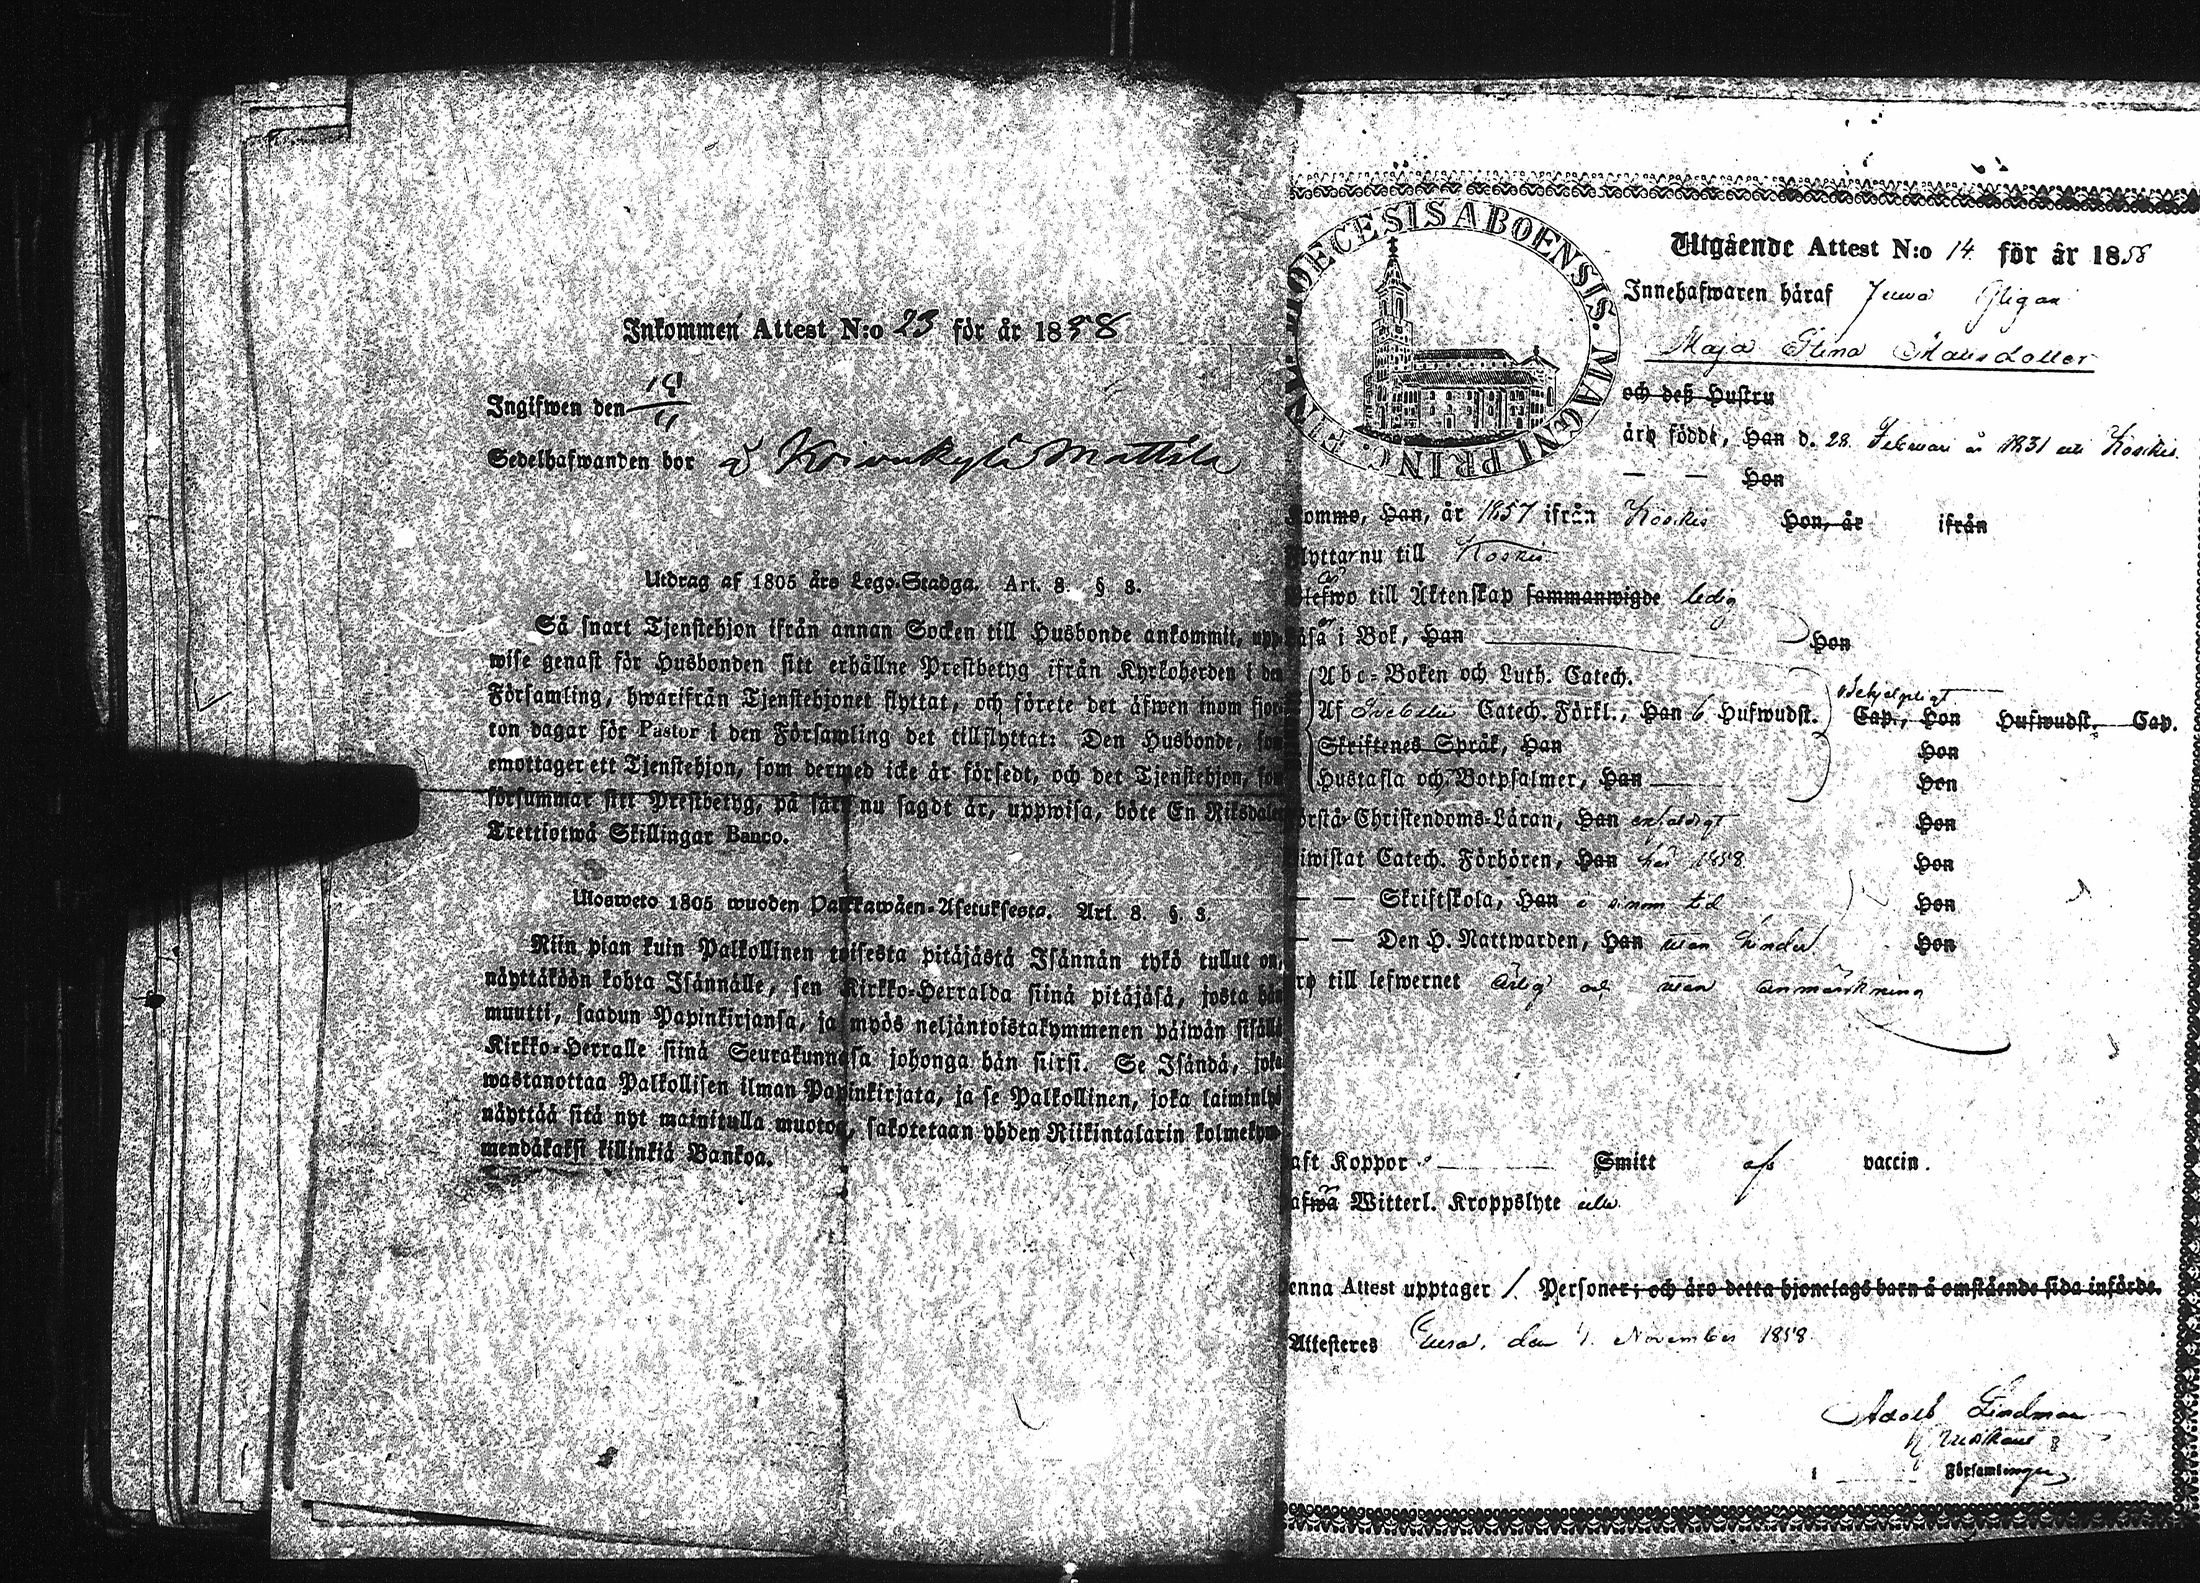 Inkommen Attest N:o 23 för år 1858
Ingifwen den 19/11
Sedelhafwanden bor å Koivukylä Mattila
Utdrag af 1805 års Lego-Stadga. Art. 8. § 3.
Så snart Tjenstehjon ifrån annan Socken till Husbonde ankommit, upp-
wise genast för Husbonden sitt erhållne Prestbetyg ifrån Kyrkoherden i den
Församling, hwarifrån Tjenstehjonet flyttat, och förete det äfwen inom fjor-
ton dagar för Pastor i den Församling det tillflyttat: Den Husbonde, som
emottager ett Tjenstehjon, som dermed icke är försedt, och det Tjenstehjon, som
försummar sitt Prestbetyg, på sätt nu sagdt är, uppwisa, böte En Riksdaler
Trettiotwå Skillingar Banco.
Ulosweto 1805 wuoden Palkkawäen-Asetuksesta. Art. 8. §. 3.
Niin pian kuin Palkollinen toisesta pitäjästä Isännän tykö tullut on,
näyttäköön kohta Isännälle, sen Kirkko-Herralda siinä pitäjäsä, josta hän
muutti, saadun Papinkirjansa, ja myös neljäntoistakymmenen päiwän sisällä
Kirkko-Herralle siinä Seurakunnasa johonga hän siirsi. Se Isändä, joka
wastanottaa Palkollisen ilman Papinkirjata, ja se Palkollinen, joka laiminlyö
näyttää sitä nyt mainitulla muotoa, sakotetaan yhden Riikintalarin kolmekym-
mendäkaksi killinkiä Bankoa.
DIOECESIS ABOENSIS. MAGNI PRINC. FINL.
Utgående Attest N:o 14 för år 1858
Innehafwaren häraf Juwa Pigan
Maja Stina Mattsdotter
och deß Hustru
äro födde, Han d. 28 Februari år 1831 uti Koskis
— — Hon
Komme, Han, år 1857 ifrån Koskis Hon, år ifrån
Flyttar nu till Koskis
Blefwo till Äktenskap sammanwigde ledig
Läsa i Bok, Han Hon
Abc-Boken och Luth. Catech.
Af Svebelii Catech. Förkl., Han 6 Hufwudst. Cap., Hon Hufwudst. Cap.
Skriftenes Språk, Han Hon
Hustafla och Botpsalmer, Han Hon
örstår Christendoms-Läran, Han enfaldigt Hon
iwistat Catech. Förhören, Han här 1858 Hon
— — Skriftskola, Han i sinom tid Hon
— — Den H. Nattwarden, Han utan hinder Hon
äro till lefwernet ärlig och utan anmärkning
aft Koppor Smitt af vaccin.
afwa Witterl. Kroppslyte
enna Attest upptager 1. Personer; och äro detta hjonelags barn å omstående sida införde.
Attesteres Eura, den 1. November 1858
Adolf Lindman
i Församlingen